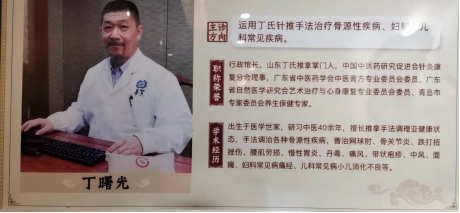 主诊方向
运用丁氏针推手法治疗骨源性疾病、妇科、儿
科常见疾病。
职称荣誉
行政馆长，山东丁氏推拿掌门人，中国中医药研究促进会针灸康
复分会理事，广东省中医药学会中医膏方专业委员会委员、广东
省自然医学研究会艺术治疗与心身康复专业委员会委员、青岛市
专家委员会养生保健专家。
学术经历
出生于医学世家，研习中医40余年，擅长推拿手法调理亚健康状
态，手法调治各种脊源性疾病，善治网球肘、骨关节炎、跌打扭
挫伤、腰肌劳损、慢性胃炎、丹毒、痛风、带状疱疹、中风、面
瘫、妇科常见病痛经、儿科常见病小儿消化不良等。
丁曙光